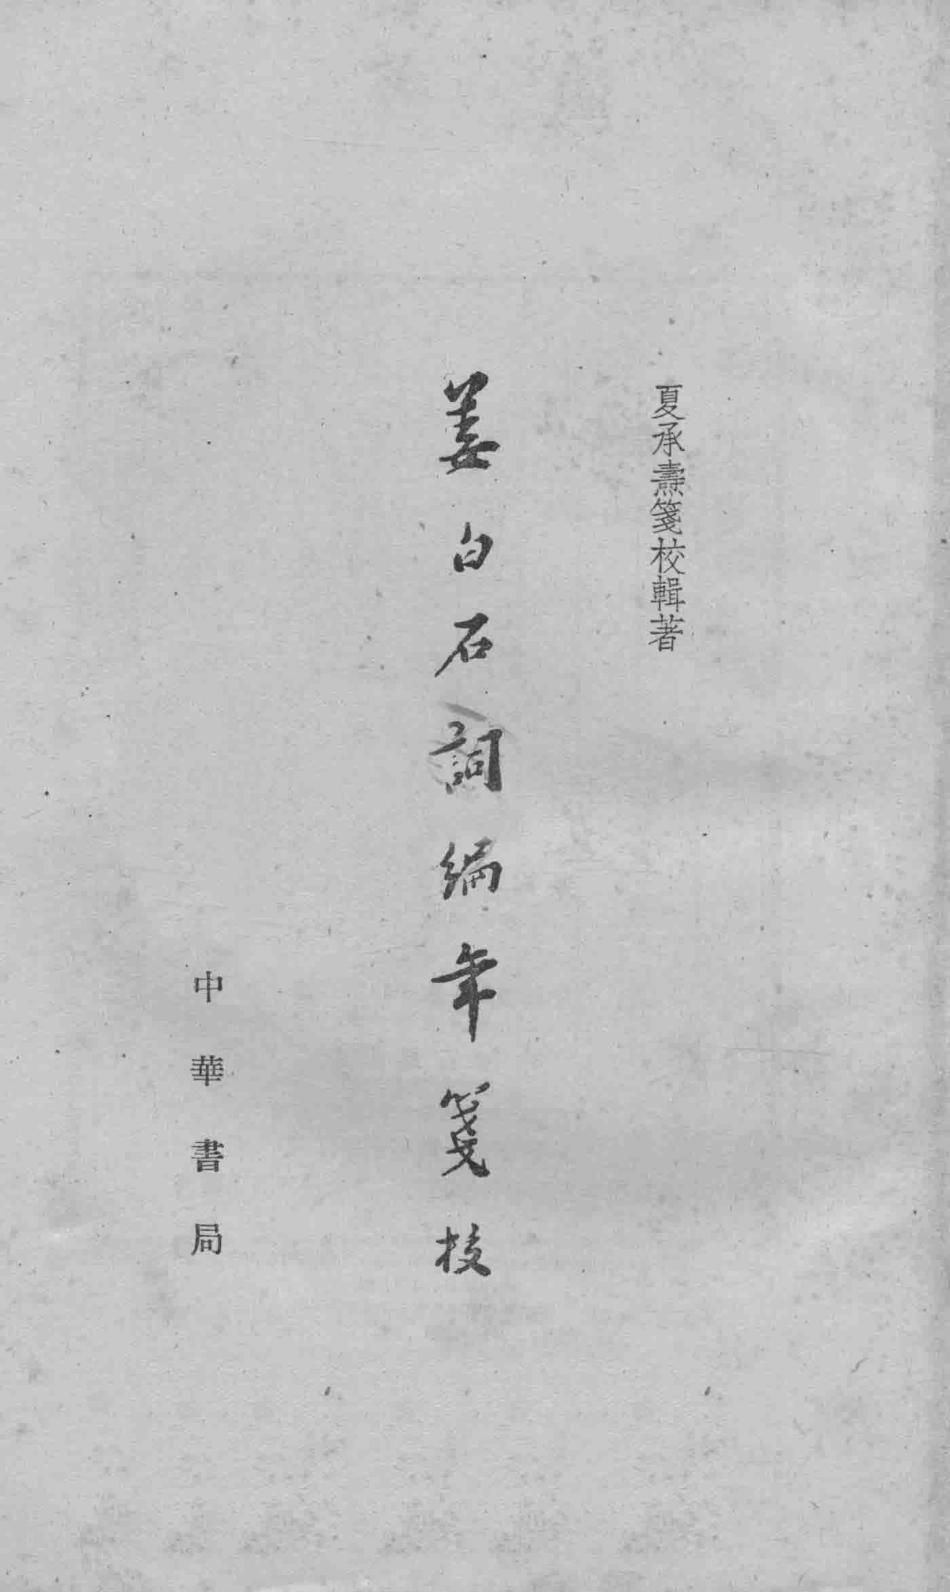 夏承燾箋校輯著
姜白石詞編年箋校
中華書局